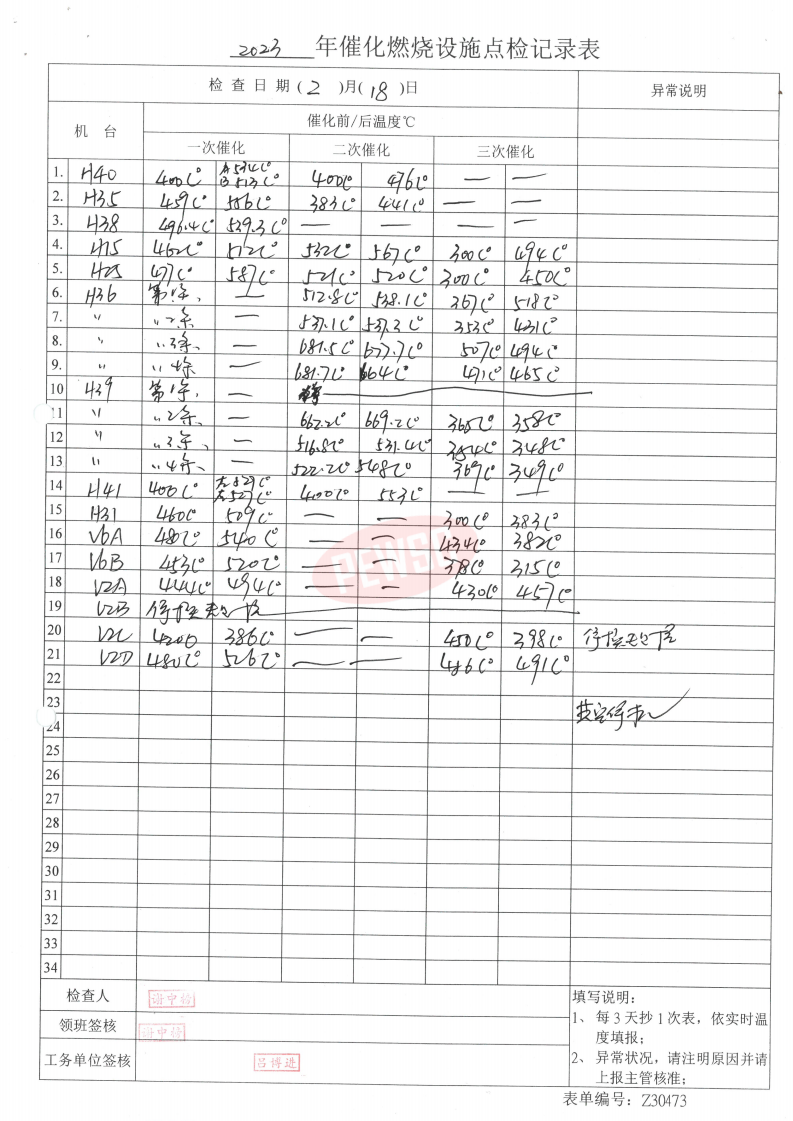 2023 年催化燃烧设施点检记录表
检查日期(2)月(18)日 异常说明
机台 催化前/后温度℃
一次催化 二次催化 三次催化
1. H40 400℃ A534℃ B513℃ 400℃ 476℃ — —
2. H35 459℃ 586℃ 383℃ 441℃ — —
3. H38 496.4℃ 539.3℃ — — — —
4. H15 462℃ 512℃ 532℃ 567℃ 300℃ 494℃
5. H25 471℃ 587℃ 521℃ 520℃ 300℃ 450℃
6. H36 第1条、 — 512.8℃ 538.1℃ 367℃ 518℃
7. " "2条 — 537.1℃ 537.3℃ 353℃ 431℃
8. " "3条、 — 681.5℃ 677.7℃ 507℃ 494℃
9. " "4条 — 681.7℃ 664℃ 471℃ 465℃
10 H39 第1条、 —
11 " "2条、 — 662.2℃ 669.2℃ 365℃ 358℃
12 " "3条、 — 516.8℃ 531.4℃ 354℃ 348℃
13 " "4条、 — 522.2℃ 548℃ 369℃ 349℃
14 H41 400℃ 529℃ 527℃ 400℃ 553℃ — —
15 H31 460℃ 509℃ — — 300℃ 383℃
16 V6A 480℃ 540℃ — — 434℃ 382℃
17 V6B 453℃ 520℃ — — 378℃ 315℃
18 V2A 444℃ 494℃ — — 430℃ 457℃
19 V2B
20 V2C 420℃ 386℃ — — 450℃ 398℃
21 V2D 480℃ 526℃ — — 486℃ 491℃
22
23
24
25
26
27
28
29
30
31
32
33
34
PEWSC
检查人 谢中榜
领班签核 谢中榜
工务单位签核 吕博进
填写说明:
1、每3天抄1次表，依实时温
度填报;
2、异常状况，请注明原因并请
上报主管核准;
表单编号：Z30473